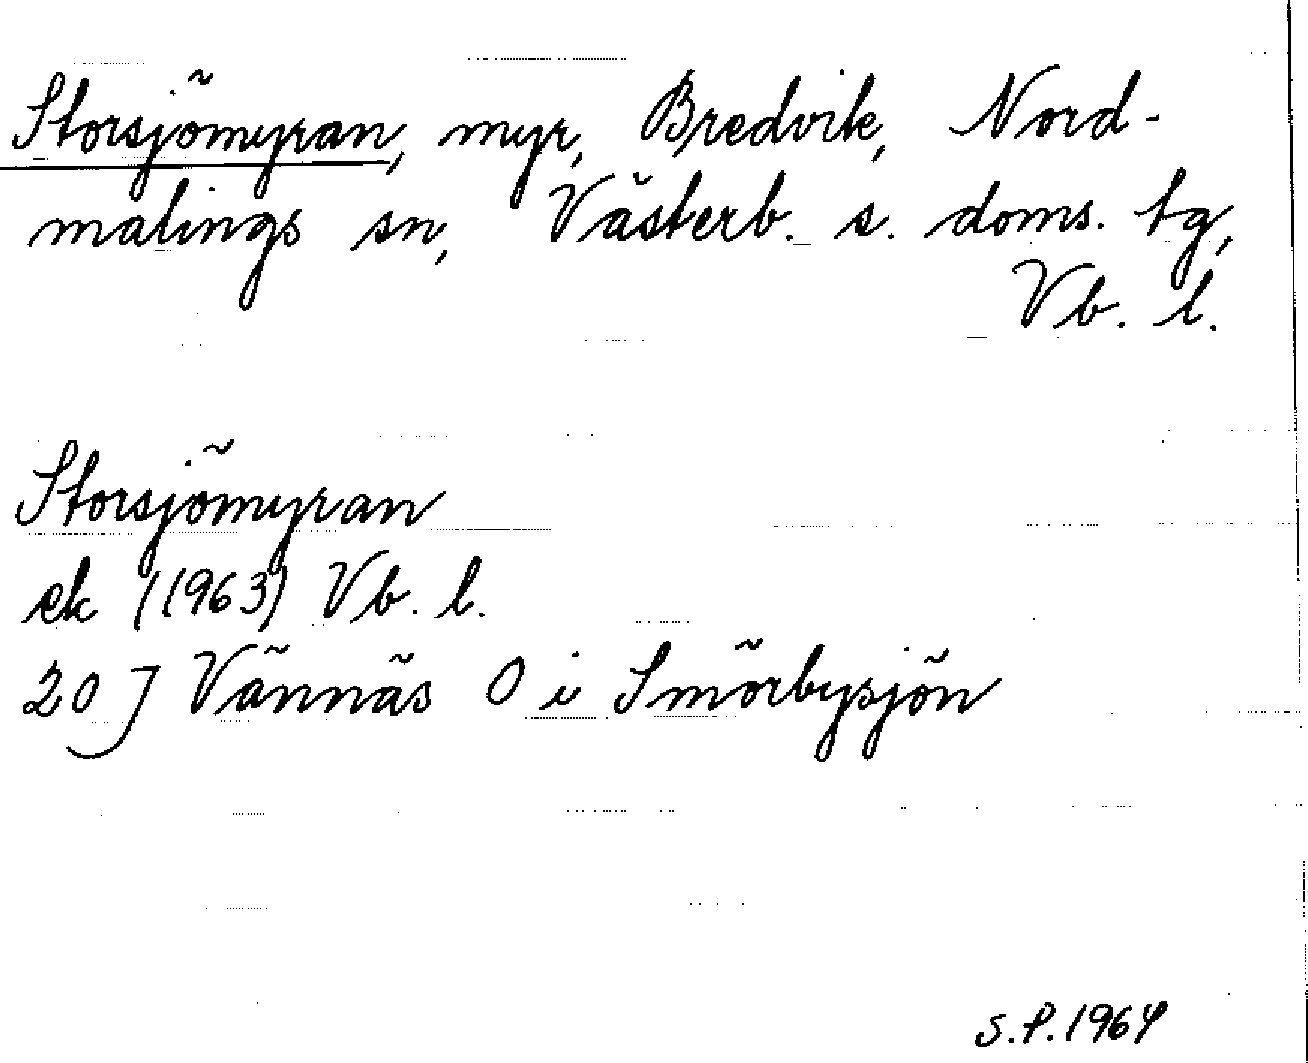 Storsjömyran, myr, Bredvik, Nord-
malings sn, Västerb. s. doms. tg,
Vb. l.
Storsjömyran
ek (1963) Vb. l.
20 J Vännäs O i Smörbysjön
S.P. 1964